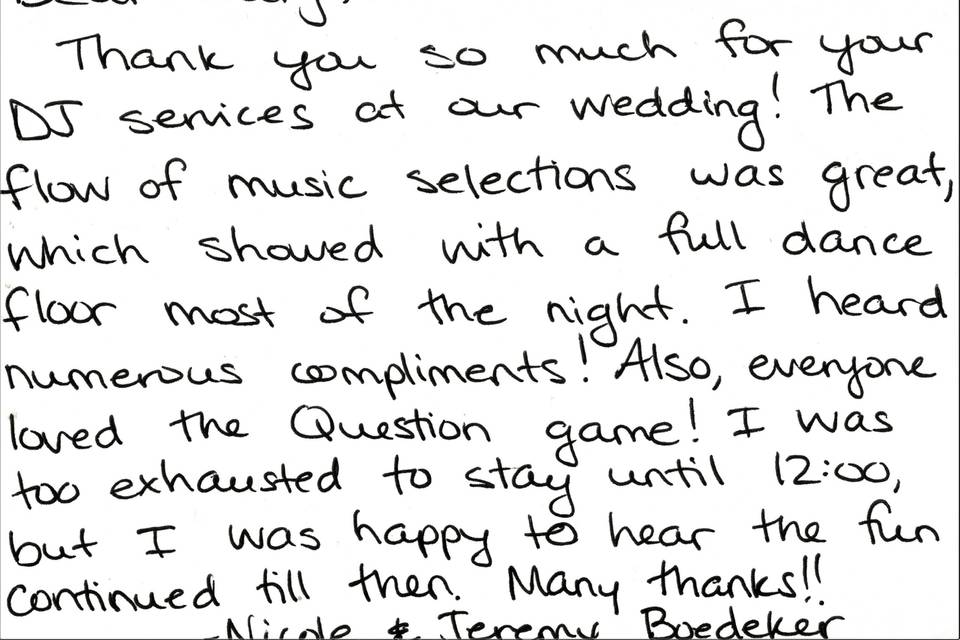 Thank you so much for your
DJ services at our wedding! The
flow of music selections was great,
which showed with a full dance
floor most of the night. I heard
numerous compliments! Also, everyone
loved the Question game! I was
too exhausted to stay until 12:00,
but I was happy to hear the fun
continued till then. Many thanks!!
-Nicole & Jeremy Boedeker